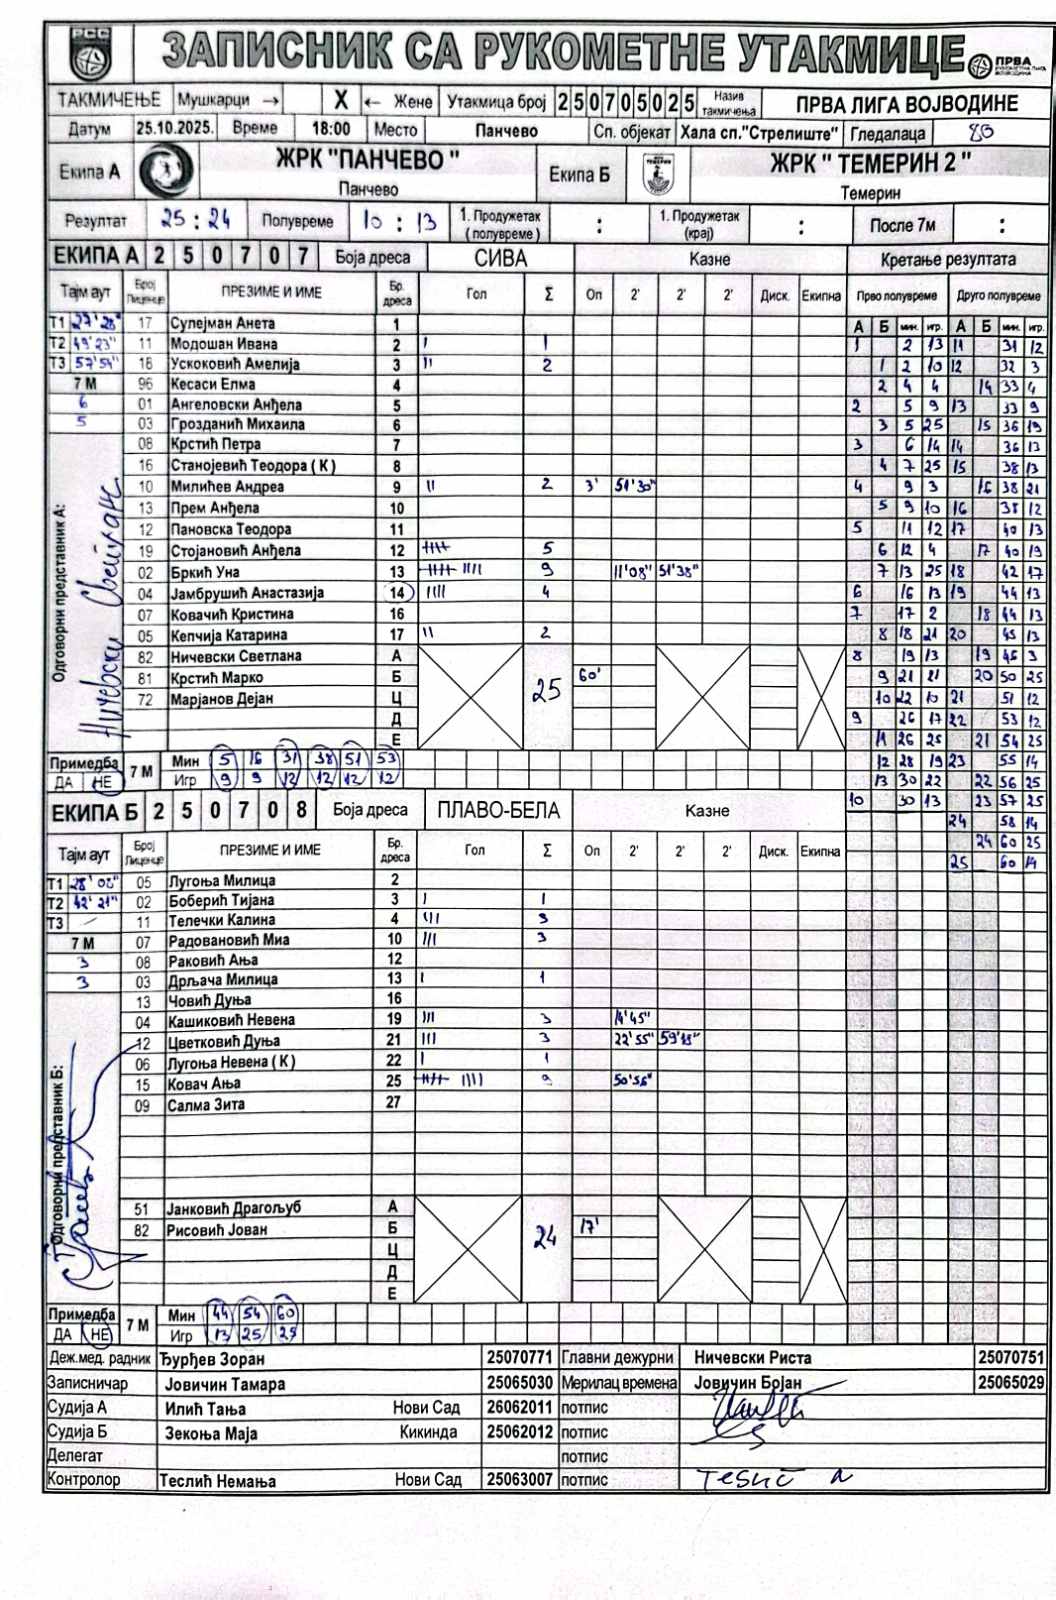 РСС ЗАПИСНИК СА РУКОМЕТНЕ УТАКМИЦЕ ПРВА
ТАКМИЧЕЊЕ Мушкарци → X ← Жене Утакмица број 2 5 0 7 0 5 0 2 5 Назив такмичења ПРВА ЛИГА ВОЈВОДИНЕ
Датум 25.10.2025. Време 18:00 Место Панчево Сп. објекат Хала сп."Стрелиште" Гледалаца 80
Екипа А ЖРК "ПАНЧЕВО " Екипа Б ЖРК " ТЕМЕРИН 2 "
Панчево Темерин
Резултат 25 : 24 Полувреме 10 : 13 1. Продужетак (полувреме) : 1. Продужетак (крај) : После 7м :
ЕКИПА А 2 5 0 7 0 7 Боја дреса СИВА Казне Кретање резултата
Тајм аут Број Лиценце ПРЕЗИМЕ И ИМЕ Бр. дреса Гол Σ Оп 2' 2' 2' Диск. Екипна Прво полувреме Друго полувреме
Т1 27'28" 17 Сулејман Анета 1 А Б мин. игр. А Б мин. игр.
Т2 49'23" 11 Модошан Ивана 2 I 1 1 2 13 11 31 12
Т3 57'54" 18 Ускоковић Амелија 3 II 2 1 2 10 12 32 3
7 М 96 Кесаси Елма 4 2 4 4 14 33 4
6 01 Ангеловски Анђела 5 2 5 9 13 33 9
5 03 Грозданић Михаила 6 3 5 25 15 36 19
08 Крстић Петра 7 3 6 14 14 36 13
16 Станојевић Теодора ( К ) 8 4 7 25 15 38 13
10 Милићев Андреа 9 II 2 3' 51'30" 4 9 3 16 38 21
13 Прем Анђела 10 5 9 10 16 38 12
12 Пановска Теодора 11 5 11 12 17 40 13
19 Стојановић Анђела 12 IIII 5 6 12 4 17 40 19
02 Бркић Уна 13 IIII IIII 9 11'08" 51'38" 7 13 25 18 42 17
04 Јамбрушић Анастазија 14 IIII 4 6 16 13 19 44 13
07 Ковачић Кристина 16 7 17 2 18 44 13
05 Кепчија Катарина 17 II 2 8 18 21 20 45 13
82 Ничевски Светлана А 8 19 13 19 46 3
81 Крстић Марко Б 25 60' 9 21 21 20 50 25
72 Марјанов Дејан Ц 10 22 10 21 51 12
Д 9 26 17 22 53 12
Е 11 26 25 21 54 25
Одговорни представник А: Ничевски Светлана
Примедба 7 М Мин 5 16 31 38 51 53 12 28 19 23 55 14
ДА НЕ Игр 9 9 12 12 12 12 13 30 22 22 56 25
ЕКИПА Б 2 5 0 7 0 8 Боја дреса ПЛАВО-БЕЛА Казне 10 30 13 23 57 25
24 58 14
Тајм аут Број Лиценце ПРЕЗИМЕ И ИМЕ Бр. дреса Гол Σ Оп 2' 2' 2' Диск. Екипна 24 60 25
25 60 14
Т1 28'02" 05 Лугоња Милица 2
Т2 42'21" 02 Боберић Тијана 3 I 1
Т3 / 11 Телечки Калина 4 III 3
7 М 07 Радовановић Миа 10 III 3
3 08 Раковић Ања 12
3 03 Дрљача Милица 13 I 1
13 Човић Дуња 16
04 Кашиковић Невена 19 III 3 14'45"
12 Цветковић Дуња 21 III 3 22'55"
06 Лугоња Невена ( К ) 22 I 1
15 Ковач Ања 25 IIII IIII 9 50'56"
09 Салма Зита 27
Одговорни представник Б:
51 Јанковић Драгољуб А
82 Рисовић Јован Б 24 17'
Ц
Д
Е
Примедба 7 М Мин 44 54 60
ДА НЕ Игр 13 25 25
Деж.мед. радник Ђурђев Зоран 25070771 Главни дежурни Ничевски Риста 25070751
Записничар Јовичин Тамара 25065030 Мерилац времена Јовичин Бојан 25065029
Судија А Илић Тања Нови Сад 26062011 потпис
Судија Б Зекоња Маја Кикинда 25062012 потпис
Делегат потпис
Контролор Теслић Немања Нови Сад 25063007 потпис Teslić N